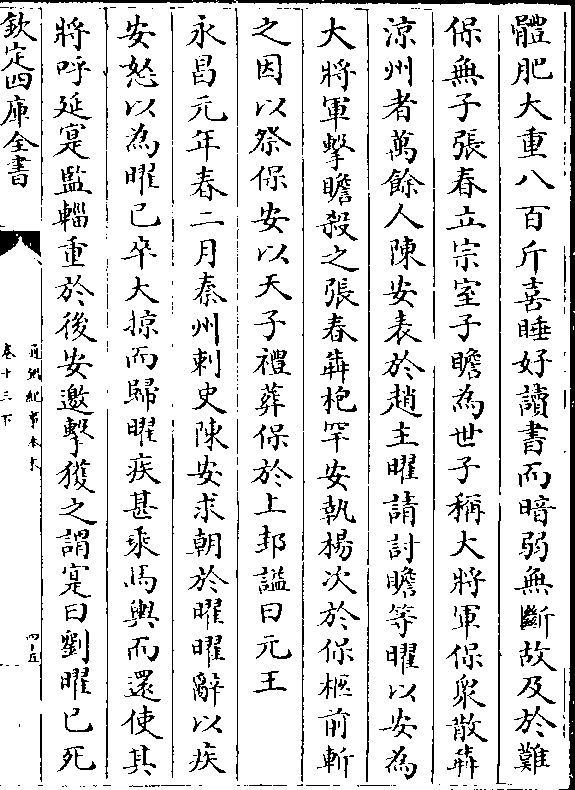 體肥大重八百斤喜睡好讀書而暗弱無斷故及於難
保無子張春立宗室子瞻為世子稱大將軍保衆散犇
涼州者萬餘人陳安表於趙主曜請討瞻等曜以安為
大將軍擊瞻殺之張春犇枹罕安執楊次於保柩前斬
之因以祭保安以天子禮葬保於上邽諡曰元王
永昌元年春二月秦州刺史陳安求朝於曜曜辭以疾
安怒以為曜已卒大掠而歸曜疾甚乘馬輿而還使其
將呼延寔監輜重於後安邀擊獲之謂寔曰劉曜已死
欽定四庫全書
通鑑紀事本末
卷十三下
四五